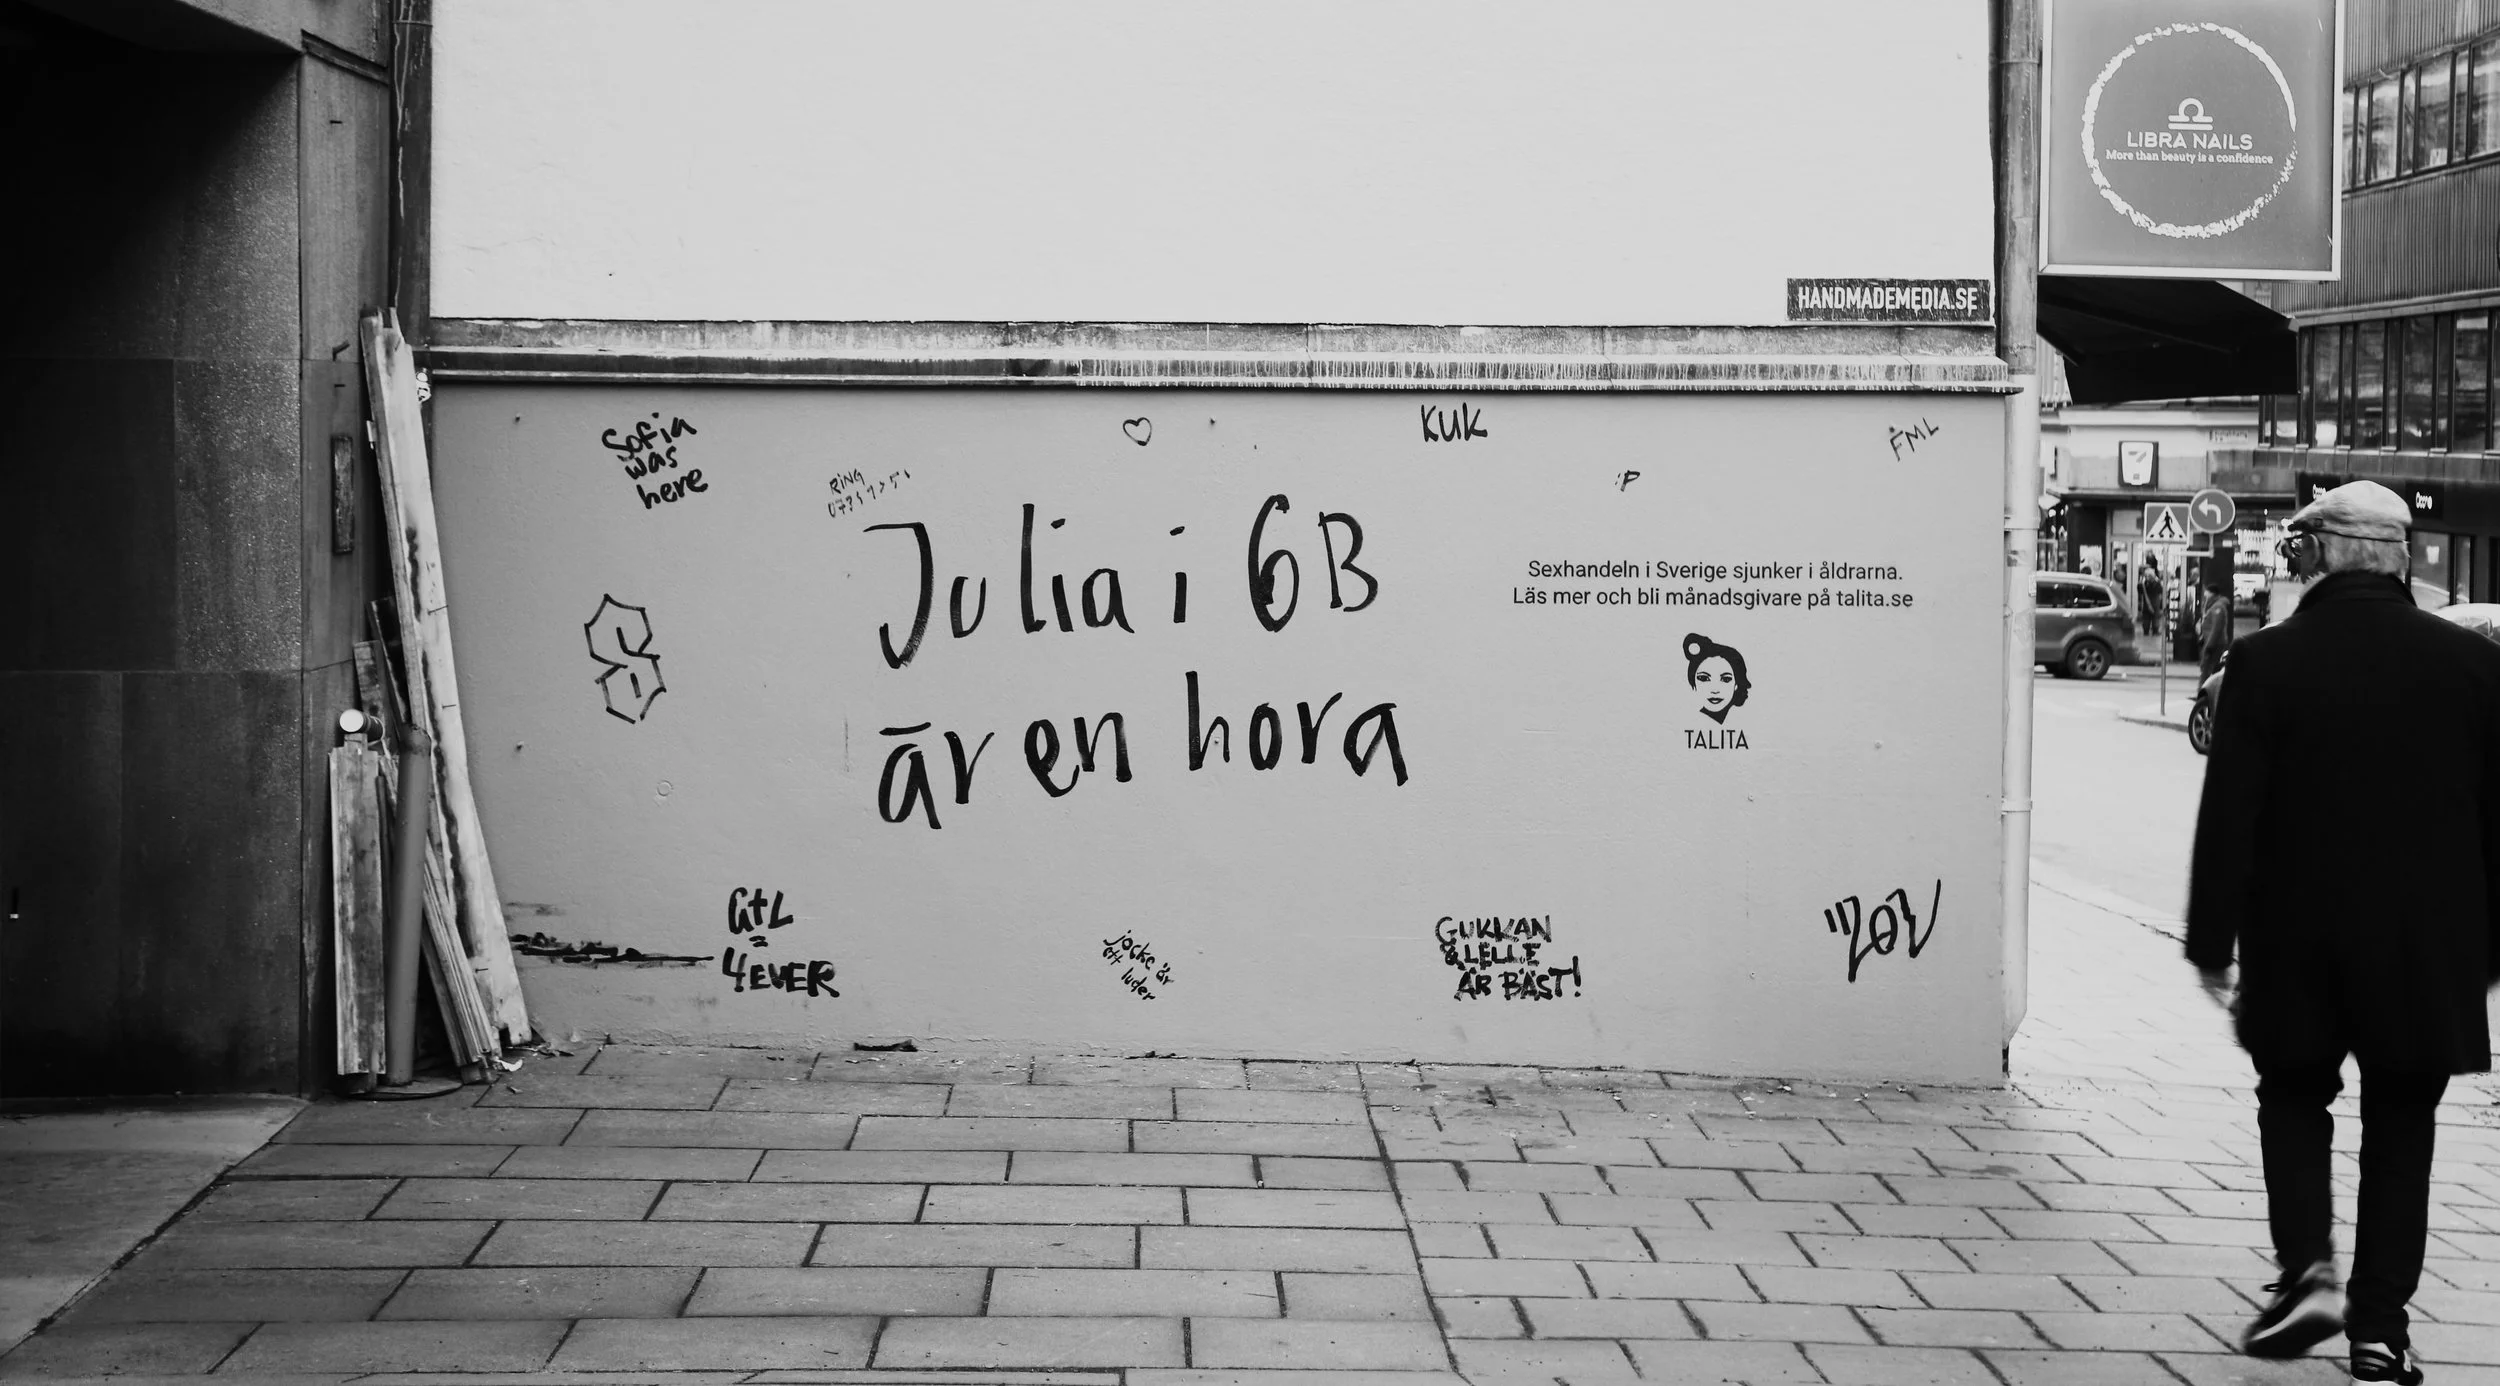 LIBRA NAILS
More than beauty is a confidence
HANDMADEMEDIA.SE
Sofia
was
here
RING
KUK
:P
FML
Julia i 6B
är en hora
Sexhandeln i Sverige sjunker i åldrarna.
Läs mer och bli månadsgivare på talita.se
TALITA
G+L
=
4EVER
jocke är
ett luder
GUKKAN
&LELLE
ÄR BÄST!
7